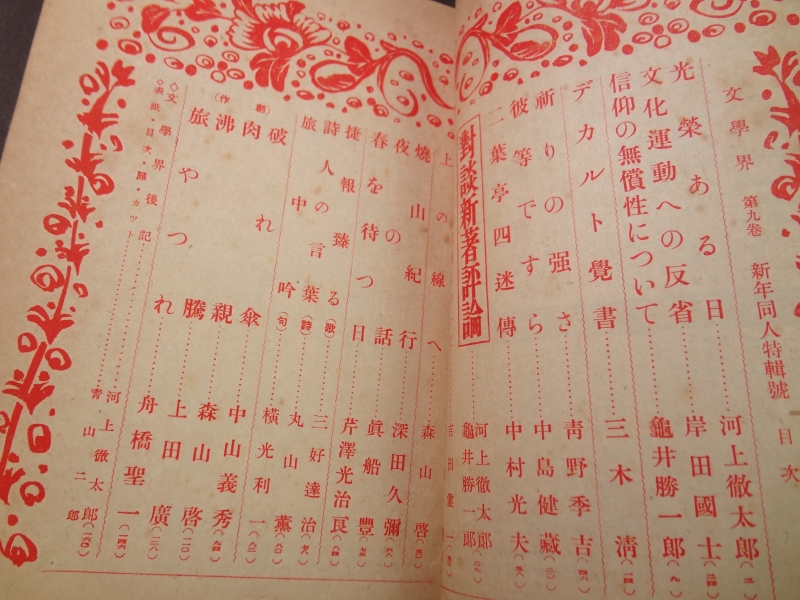 文學界 第九卷 新年同人特輯號 目次
光榮ある日……河上徹太郎
文化運動への反省……岸田國士
信仰の無償性について……龜井勝一郎(九)
デカルト覺書……三木淸(一四)
祈りの强さ……靑野季吉
彼等ですら……中島健藏
二葉亭四迷傳……中村光夫
對談新著評論 河上徹太郎 龜井勝一郎
吉田健一
上の線へ……森山啓
燒山紀行……深田久彌
夜の話……眞船豐
春を待つ日……芹澤光治良
捷報臻る(歌)……三好達治
詩人の言葉(詩)……丸山薰
旅中吟(句)……橫光利一
破れ傘……中山義秀
(創作)肉親……森山啓
沸騰……上田廣
旅やつれ……舟橋聖一
◇文學界後記……河上徹太郎
◇表紙・目次・扉・カット……靑山二郎